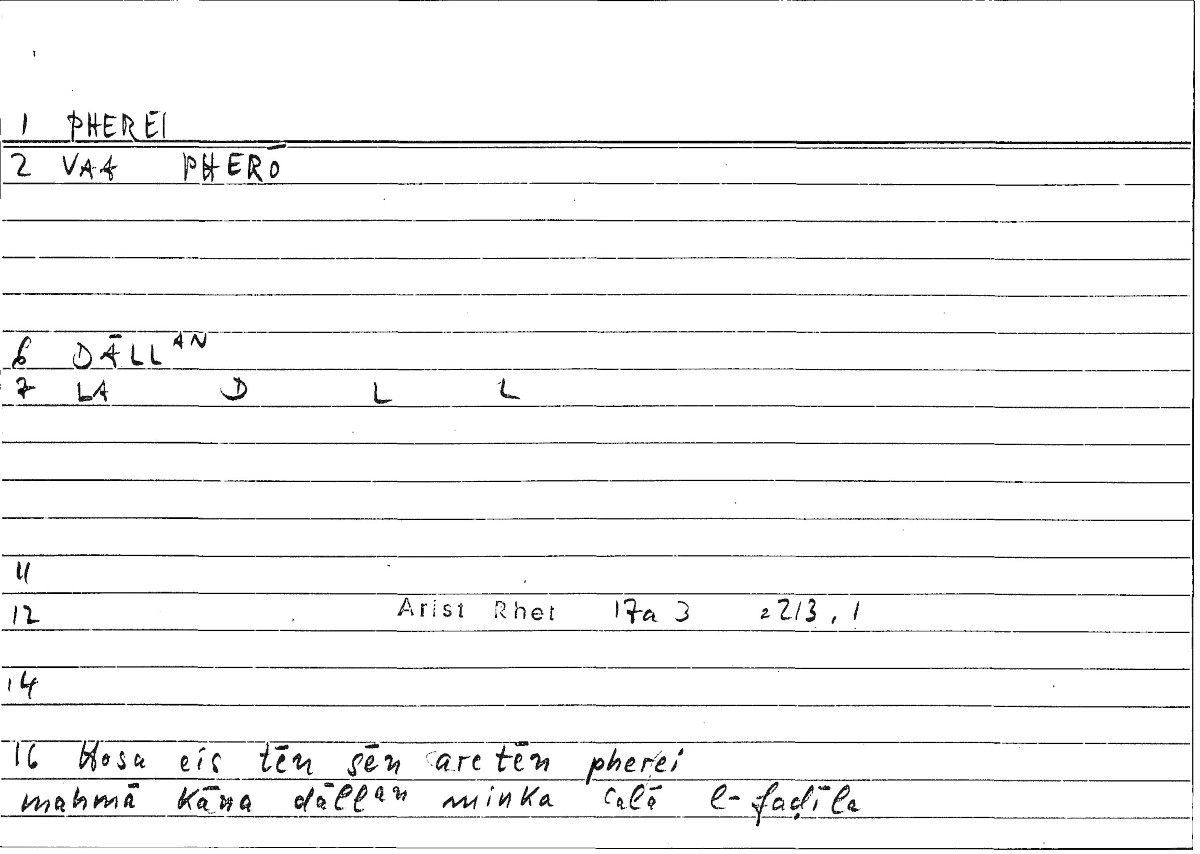 1 PHEREI
2 VAA PHERŌ
6 DĀLL^AN
7 LA D L L
11
12 Arist Rhet 17a 3 = 2213, 1
14
16 Hosa eis tēn sēn aretēn pherei
mahmā kāna dāll^an minka ʿalā l-faḍīla